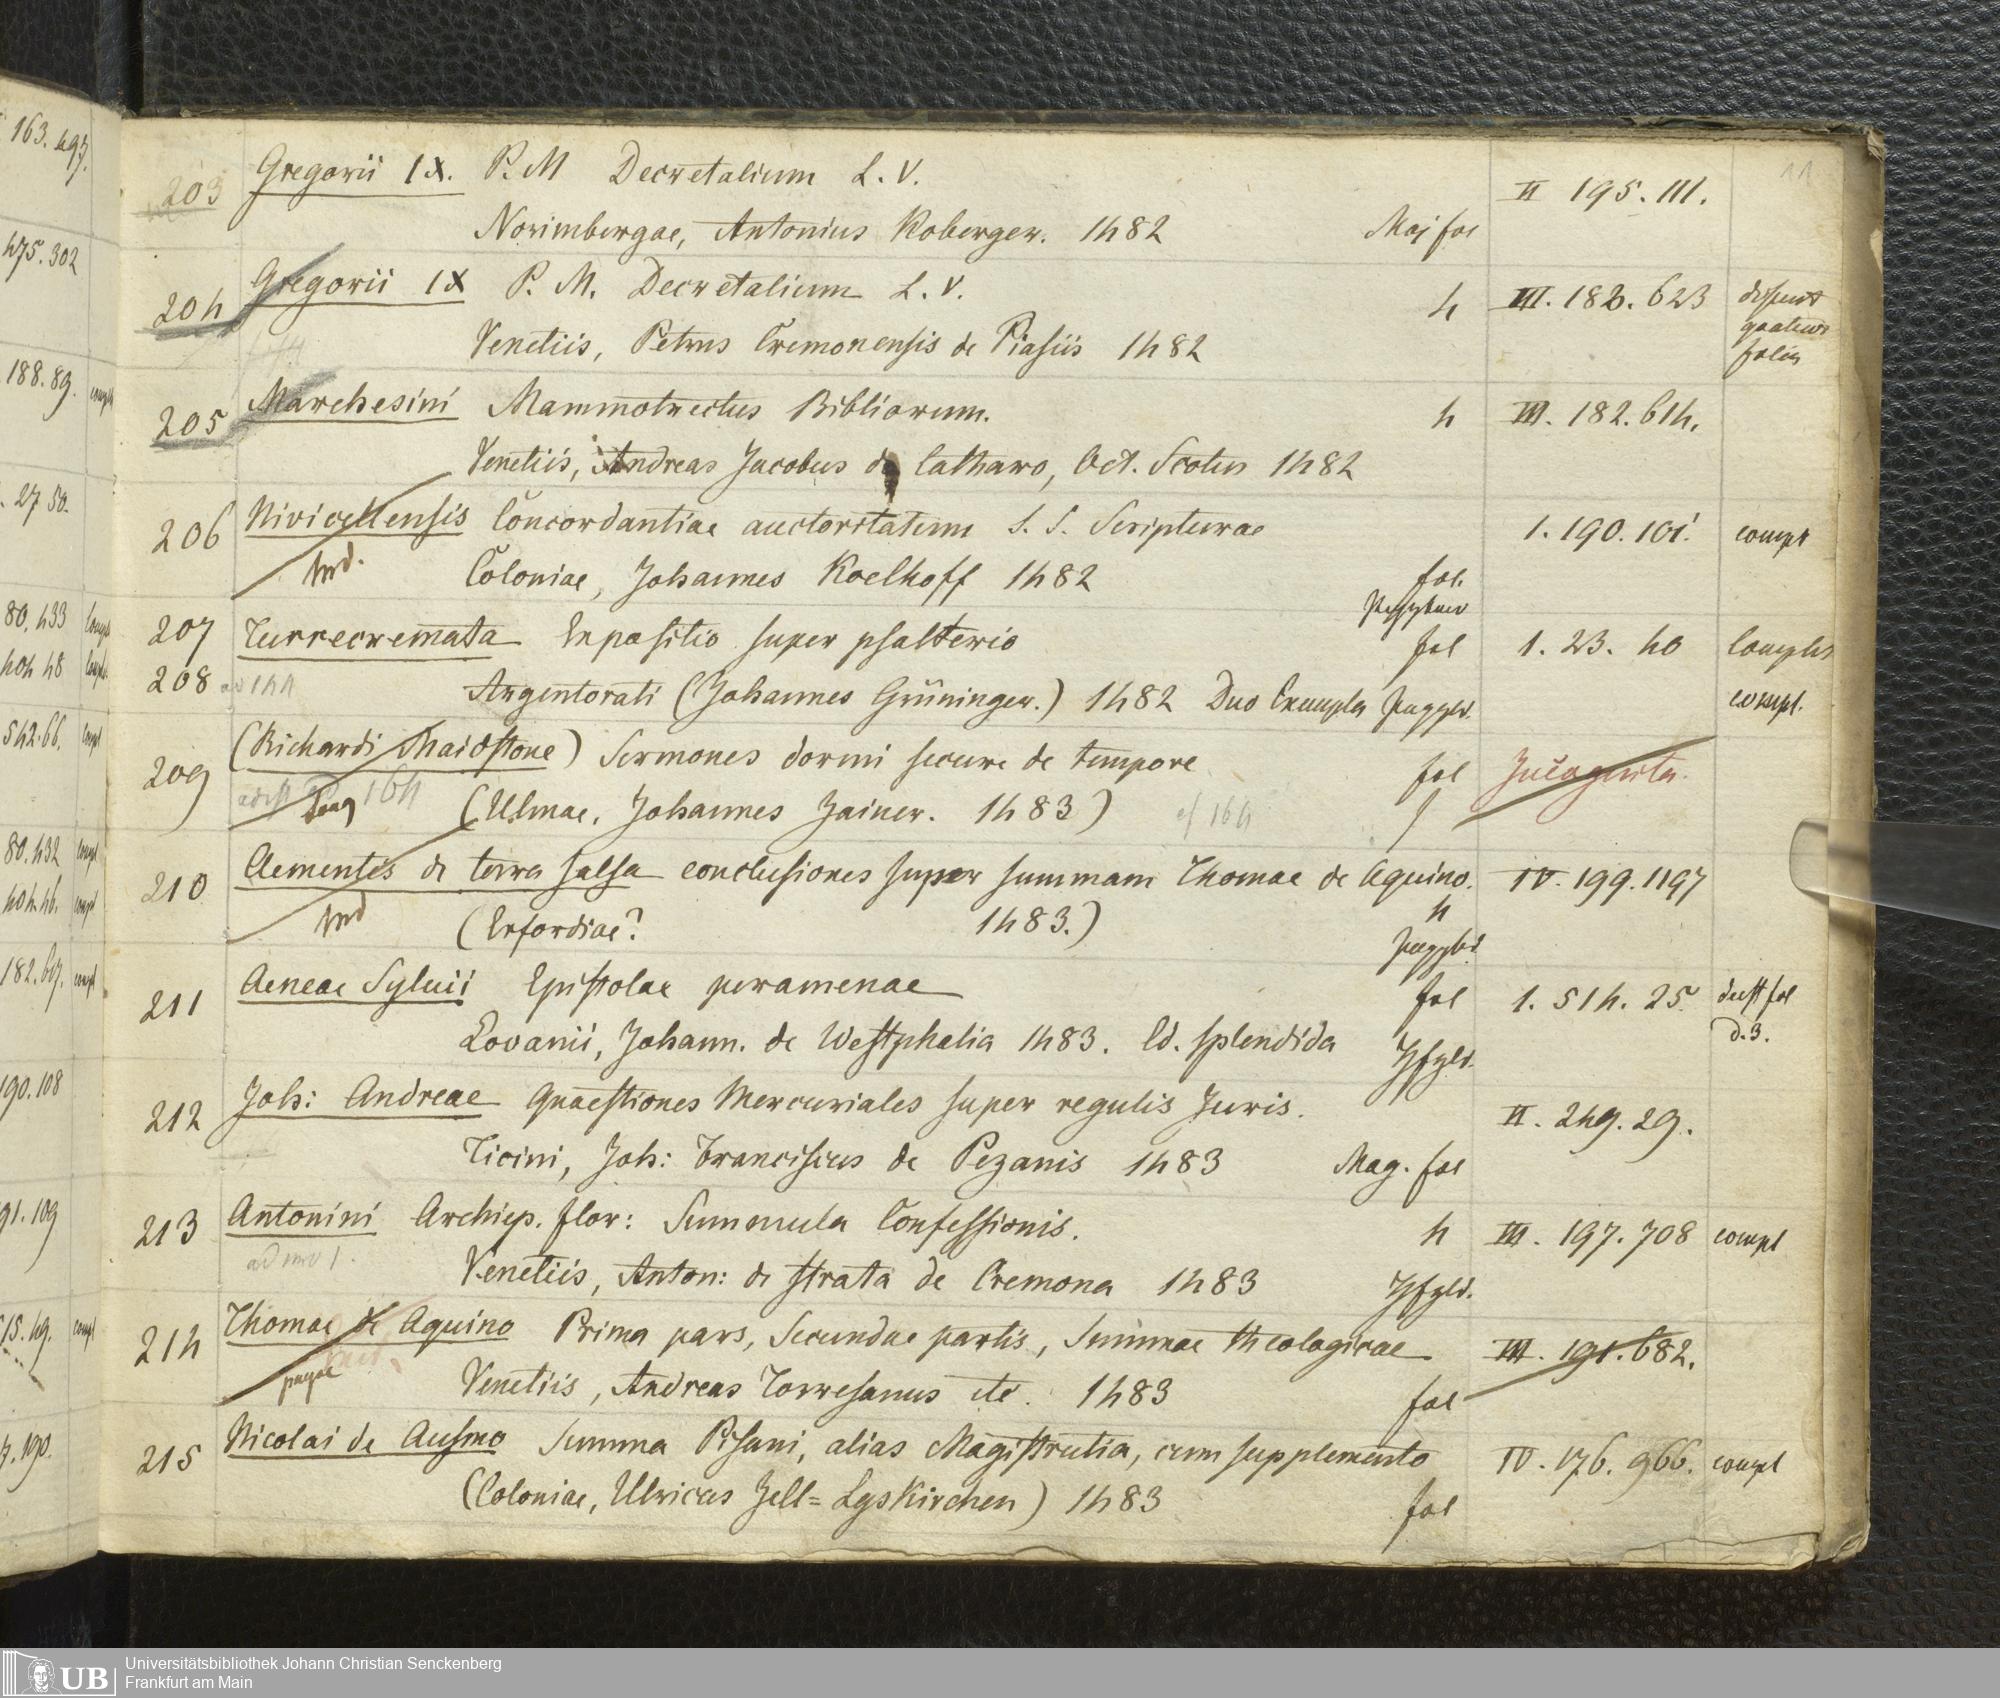 163. 497.
475. 302
188. 89. compl
27. 50.
80. 433 compl
404 48 compl.
542. 66. compl
80. 432 compl
404. 46. compl
182. 617. compl
190. 108
91. 109
515. 49. compl
190.
11
203 Gregorii IX. P. M Decretalium L. V. II 195. 111.
Norimbergae, Antonius Koberger. 1482 Maj fol
204 Gregorii IX P. M. Decretalium L. V. 4 III. 182. 623 desunt
Venetiis, Petrus Cremonensis de Piasiis 1482 folia
205 Marchesini Mammotrectus Bibliorum. 4 III. 182. 614.
Venetiis, Andreas Jacobus de Catharo, Oct. Scotus 1482
206 Nivicellensis Concordantiae auctoritatum S. S. Scripturae 1. 190. 101. compl
Coloniae, Johannes Koelhoff 1482 fol.
207 Turrecremata Expositio super psalterio fol 1. 23. 40 Complet
208 ad 144 Argentorati (Johannes Grüninger.) 1482 Duo Exempla compl.
209 (Richardi Maidstone) Sermones dormi secure de tempore fol Incognita.
164 (Ulmae, Johannes Zainer. 1483) cf 164
210 Clementis de terra salsa conclusiones super summam Thomae de Aquino. IV. 199. 1197
(Erfordiae? 1483.) 4
211 Aeneae Sylvii Epistolae peramenae fol 1. 514. 25. deest fol
Lovanii, Johann. de Westphalia 1483. Ed. splendida d. 3.
212 Joh: Andreae Quaestiones Mercuriales super regulis Juris. II. 249. 29.
Ticini, Joh: Franciscus de Pezanis 1483 Mag. fol
213 Antonini Archiep. flor: Summula Confessionis. 4 III. 197. 708 compl
Venetiis, Anton: de strata de Cremona 1483
214 Thomae de Aquino Prima pars, Secundae partis, Summae theologicae III. 191. 682.
Venetiis, Andreas Torresanus etc. 1483 fol
215 Nicolai de Ausmo Summa Pisani, alias Magistrutia, cum supplemento IV. 176. 966. compl
(Coloniae, Ulricus Zell= Lyskirchen) 1483 fol
UB Universitätsbibliothek Johann Christian Senckenberg
Frankfurt am Main